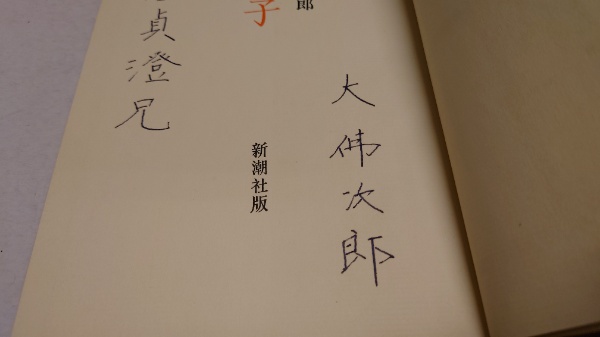 大佛次郎
郎
子
新潮社版
貞澄兄